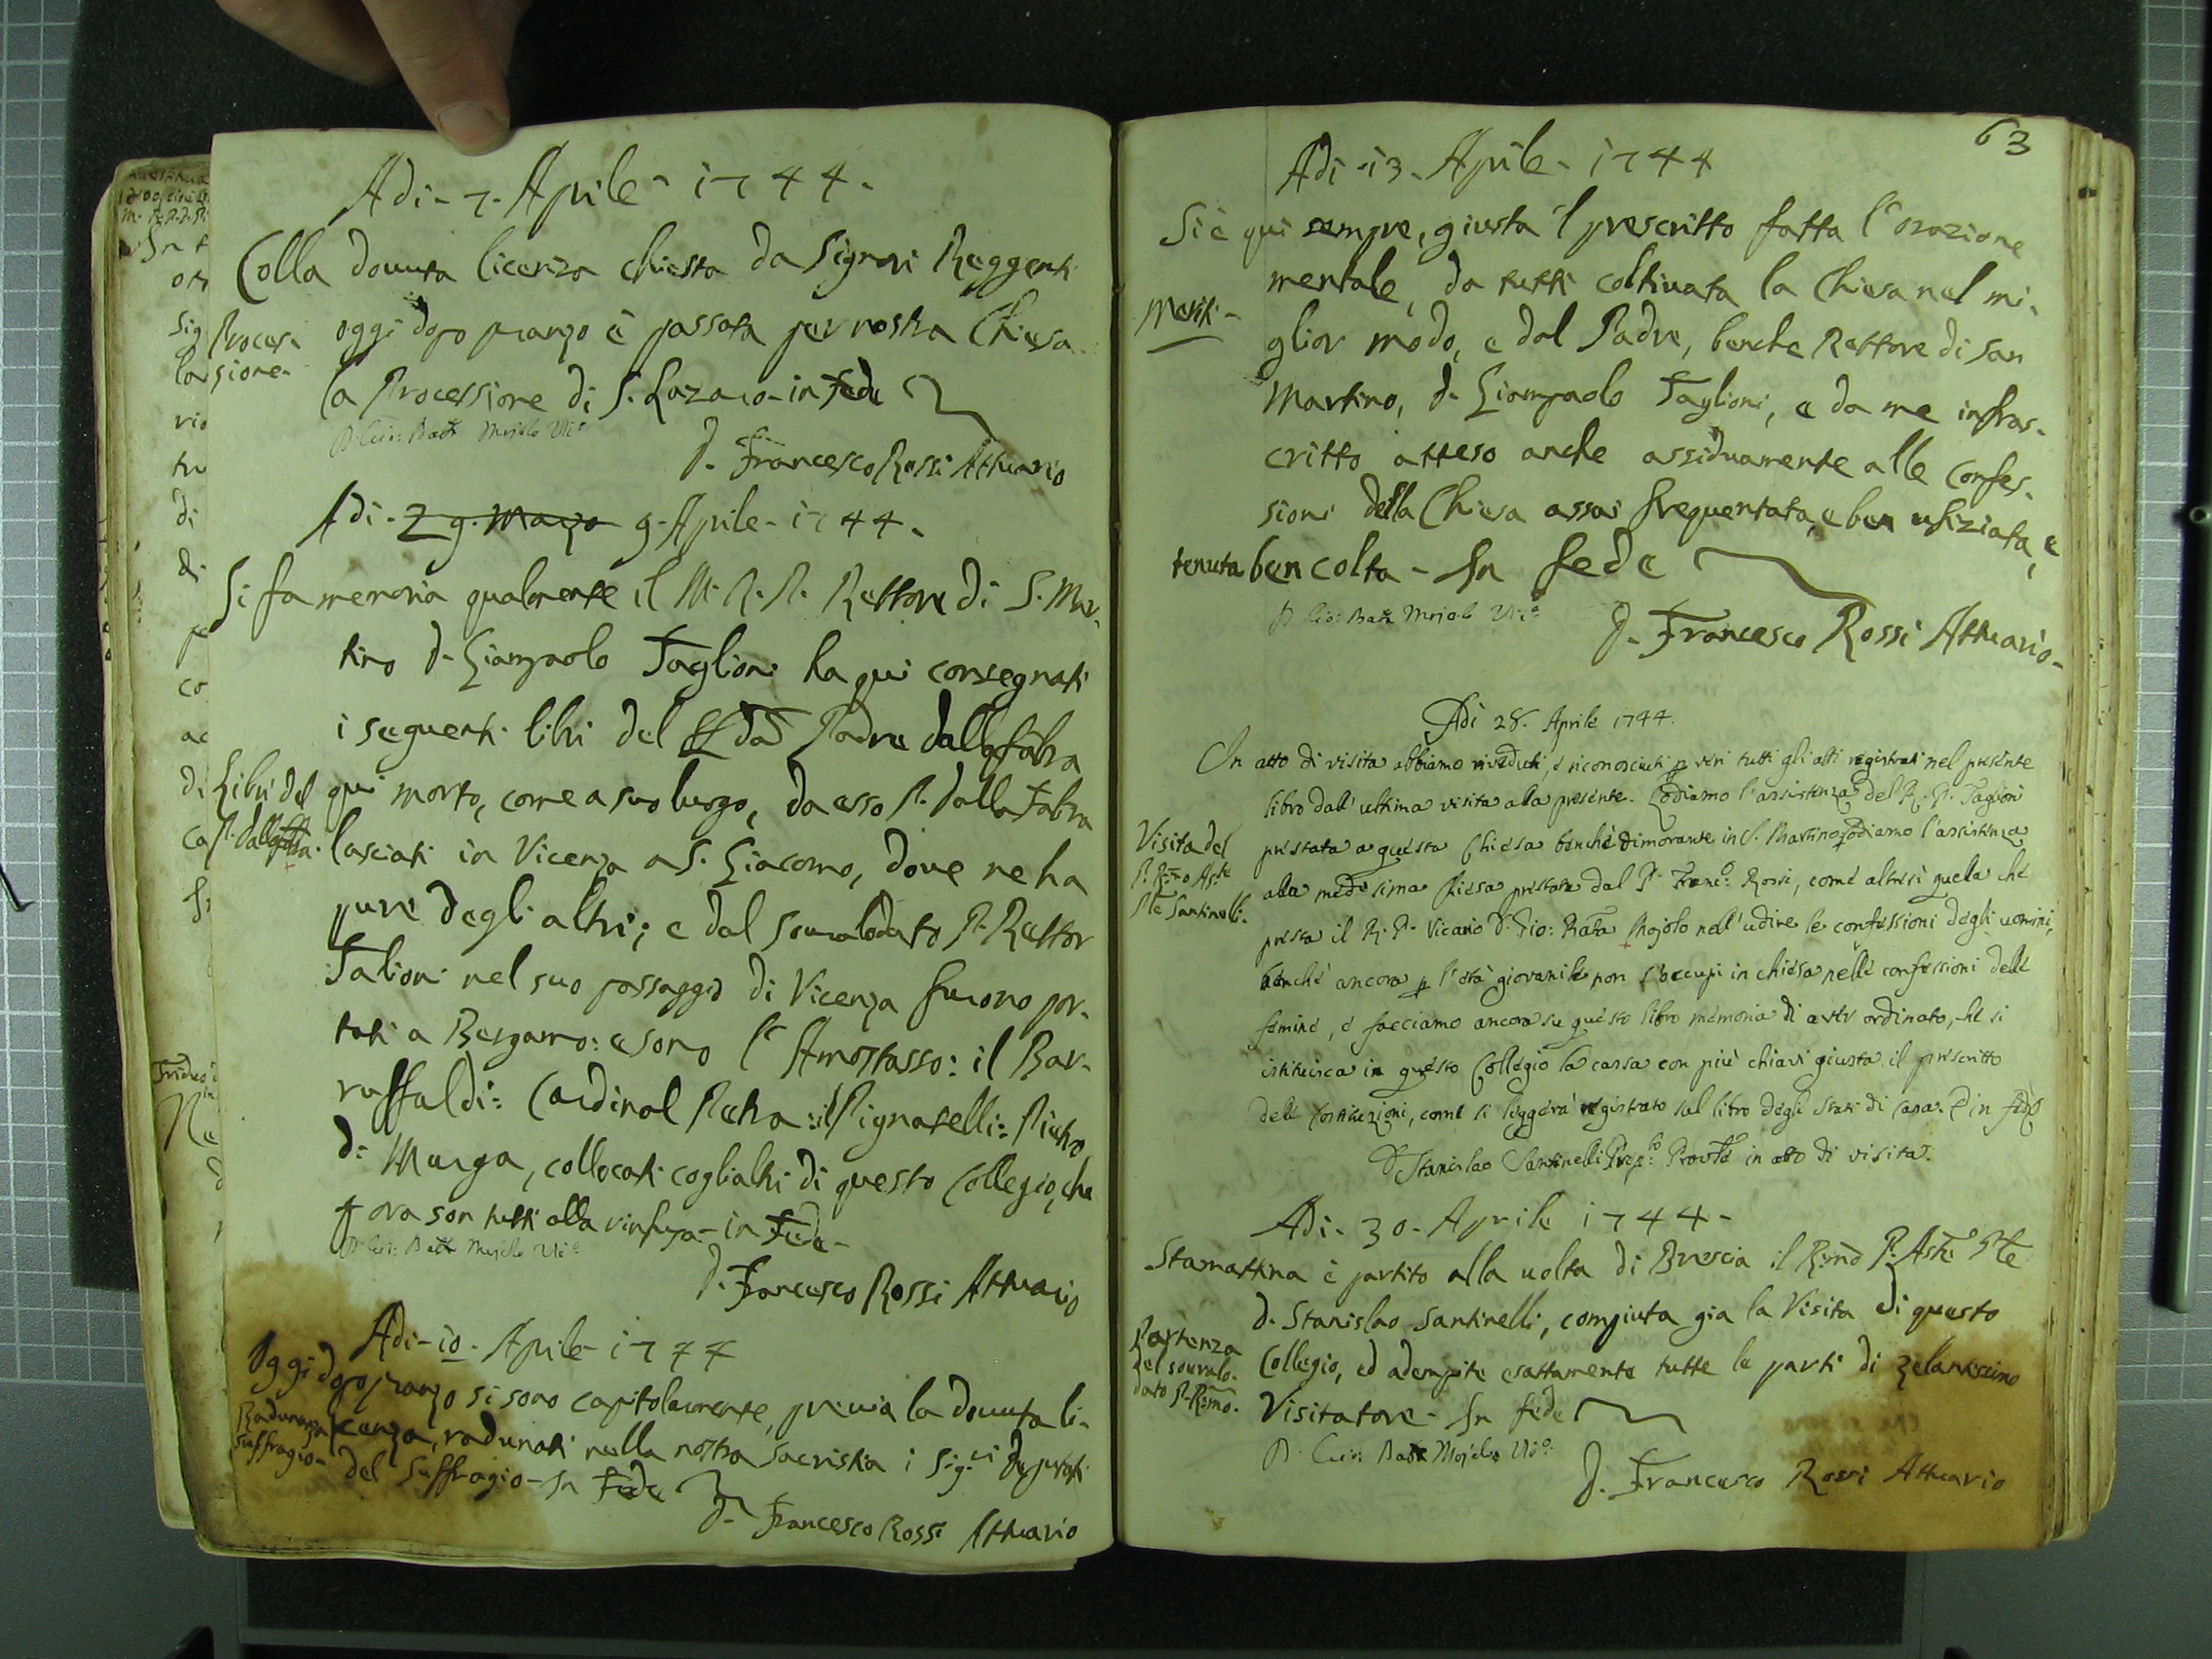 Adi - 7 - Aprile - 1744 -
Colla douuta licenza chiesta da Signori Reggenti
Proces-
sione-
oggi dopo pranzo è passata per nostra Chiesa
la Processione di S. Lazaro - in fede
D. Gio: Batta Mojolo Vic.o
D. Francesco Rossi Attuario
Adi - 29. Marzo 9 - Aprile - 1744 -
Si fa memoria qualmente il M. R. P. Rettore di S. Mar-
tino d. Giampaolo Taglioni ha qui consegnati
i seguenti libri del Padre dalla fabra
Libri del
P. dalla fabra.
qui morto, come a suo luogo, da esso P. dalla Fabra
lasciati in Vicenza a S. Giacomo, doue ne ha
pure degli altri; e dal souralodato P. Rettor
Talioni nel suo passaggio di Vicenza furono por-
tati a Bergamo: e sono l'Amostasso: il Bar-
ruffaldi: Cardinal Petra: il Pignatelli: Pietro
di Murga, collocati cogli altri di questo Collegio, che
ora son tutti alla rinfusa - in Fede -
D. Gio: Batta Mojolo Vic.o
D. Francesco Rossi Attuario
Adi - 10 - Aprile - 1744
Oggi dopo pranzo si sono capitolarmente, preuia la douuta li-
Radunanza
suffragio-
cenza, radunati nella nostra Sacristia i Sig.ri Deputati
del Suffragio - In Fede
D. Francesco Rossi Attuario
63
Adi - 13 - Aprile - 1744
Si è qui sempre, giusta 'l prescritto fatta l'orazione
mentale, da tutti coltiuata la Chiesa nel mi-
Meriti -
glior modo, e dal Padre, benche Rettore di San
Martino, d. Giampaolo Taglioni, e da me infras-
critto atteso anche assiduamente alle Confes-
sioni della Chiesa assai frequentata, e ben ufiziata, e
tenuta ben colta - In fede
D. Gio: Batta Mojolo Vic.o
D. Francesco Rossi Attuario -
Adi 28. Aprile 1744.
In atto di visita abbiamo riveduti, e riconosciuti p veri tutti gli atti registrati nel presente
libro dall' ultima visita alla presente. Lodiamo l'assistenza del R. P. Taglioni
Visita del
P. R.mo Ask.e
Pte Santinelli.
prestata a questa Chiesa benche dimorante in S. Martino, lodiamo l'assistenza
alla medesima Chiesa prestata dal P. Franc.o Rossi, come altresì quella che
presta il R. P. Vicario D. Gio: Batta Mojolo nell' udire le confessioni degli uomini,
benche ancora p l'età giovanile non s'occupi in chiesa nelle confessioni delle
femine, e facciamo ancora su questo libro memoria di aver ordinato, che si
istituisca in questo Collegio la cassa con più chiavi giusta il prescritto
delle Costituzioni, come si leggera registrato sul libro degli Stati di Casa. E in fede
D. Stanislao Santinelli Prep.to Prov.le in atto di visita.
Adi - 30 - Aprile 1744 -
Stamattina è partito alla uolta di Brescia il R.mo P. Ask.e Pte
d. Stanislao Santinelli, compiuta gia la Visita di questo
Partenza
del souralo-
dato P. R.mo.
Collegio, ed adempite esattamente tutte le parti di zelantissimo
Visitatore - In fede
D. Gio: Batta Mojolo Vic.o
D. Francesco Rossi Attuario